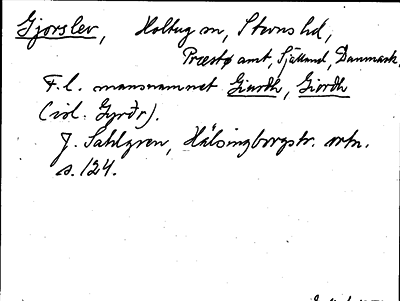 Gjorslev, Holtug sn, Stevns hd,
Præstø amt, Sjælland, Danmark.
F.l. mansnamnet Giurdh, Giordh
(isl. Gyrðr).
J. Sahlgren, Hälsingborgstr. ortn.
s. 124.